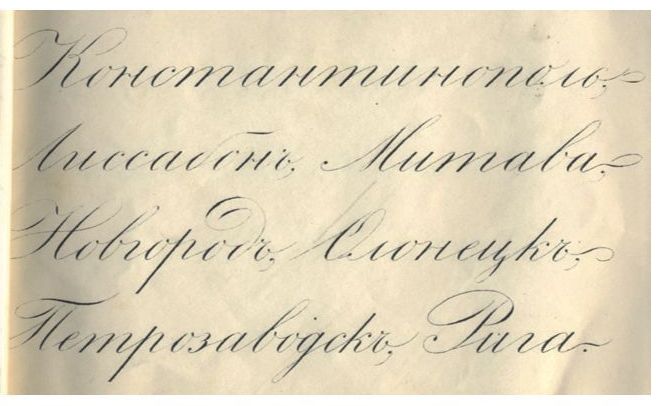 Константинополь,
Лиссабонъ, Митава,
Новгородъ, Олонецкъ,
Петрозаводскъ, Рига.